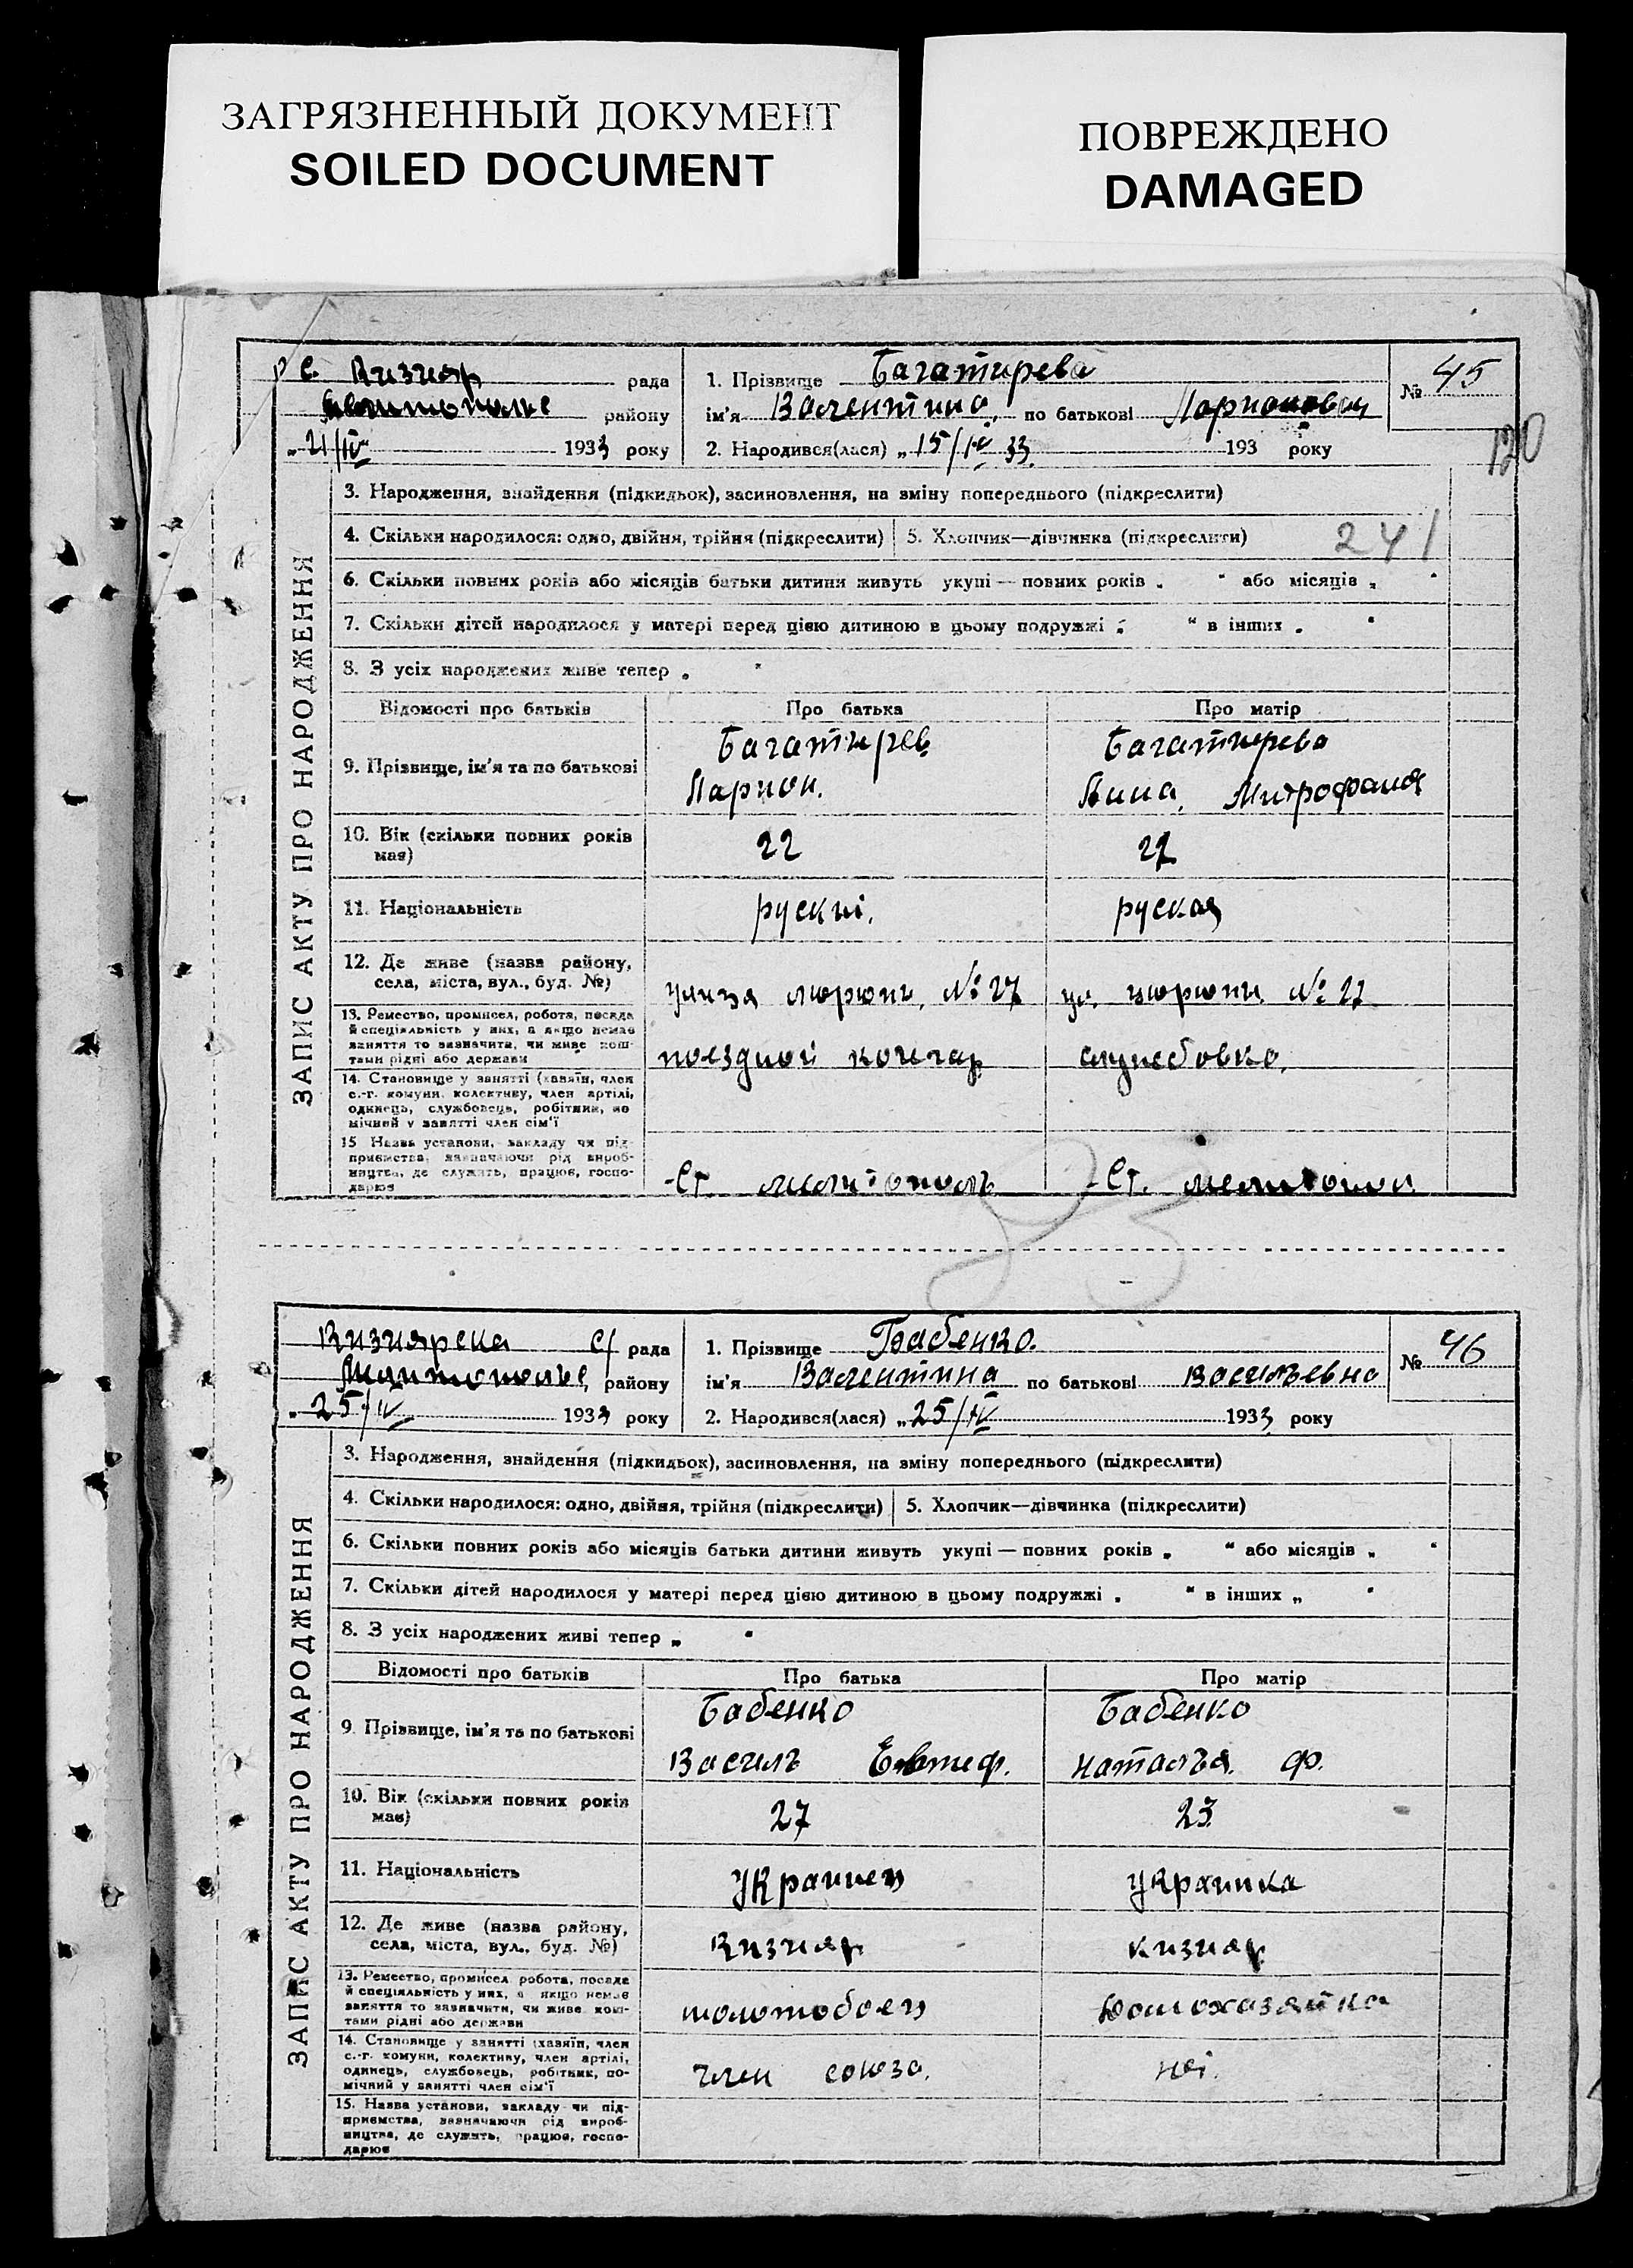 ЗАГРЯЗНЕННЫЙ ДОКУМЕНТ
SOILED DOCUMENT
ПОВРЕЖДЕНО
DAMAGED
с. Кизияр рада
района району
"21/IV 1933 року
1. Прізвище Багатирева
ім'я Валентина, по батькові Ларионовая
2. Народився(лася) „15/IV 33. 193 року
№ 45
120
ЗАПИС АКТУ ПРО НАРОДЖЕННЯ
3. Народження, знайдення (підкидьок), засиновлення, на зміну попереднього (підкреслити)
4. Скільки народилося: одно, двійня, трійня (підкреслити) 5. Хлопчик—дівчинка (підкреслити)
241
6. Скільки повних років або місяців батьки дитини живуть укупі — повних років „ " або місяців „ "
7. Скільки дітей народилося у матері перед цією дитиною в цьому подружжі „ " в інших „ "
8. З усіх народжених живе тепер „ "
Відомості про батьків Про батька Про матір
9. Прізвище, ім'я та по батькові
Багатирев
Ларион.
Багатирева
Анна,
10. Вік (скільки повних років має) 22 27
11. Національність руский. руская
12. Де живе (назва району, села, міста, вул., буд. №)
улиця № 27
ул. № 27
13. Ремество, промисел, робота, посада й спеціяльність у них, а якщо немає заняття то зазначити, чи живе коштами рідні або держави
поездной кочегар
служебовка.
14. Становище у занятті (хазяїн, член с.-г. комуни, колективу, член артілі, одинець, службовець, робітник, помічний у занятті член сім'ї
15 Назва установи, закладу чи підприємства, зазначаючи рід виробництва, де служить, працює, господарює
Ст. Ст.
Кизиярска с/ рада
району
"25/IV 1933 року
1. Прізвище Бабенко.
ім'я Валентина по батькові Васильевна
2. Народився(лася) „25/IV 1933 року
№ 46
ЗАПИС АКТУ ПРО НАРОДЖЕННЯ
3. Народження, знайдення (підкидьок), засиновлення, на зміну попереднього (підкреслити)
4. Скільки народилося: одно, двійня, трійня (підкреслити) 5. Хлопчик—дівчинка (підкреслити)
6. Скільки повних років або місяців батьки дитини живуть укупі — повних років „ " або місяців „ "
7. Скільки дітей народилося у матері перед цією дитиною в цьому подружжі „ " в інших „ "
8. З усіх народжених живі тепер „ "
Відомості про батьків Про батька Про матір
9. Прізвище, ім'я та по батькові
Бабенко
Василь Евтиф.
Бабенко
Наталья Ф.
10. Вік (скільки повних років має) 27 23
11. Національність украинец украинка
12. Де живе (назва району, села, міста, вул., буд. №) Кизияр кизияр
13. Ремество, промисел робота, посада й спеціяльність у них, а якщо немає заняття то зазначити, чи живе коштами рідні або держави
молотобоец
домохазяйка
14. Становище у занятті (хазяїн, член с.-г. комуни, колективу, член артілі, одинець, службовець, робітник, помічний у занятті член сім'ї
член союза.
неі.
15. Назва установи, закладу чи підприємства, зазначаючи рід виробництва, де служить, працює, господарює